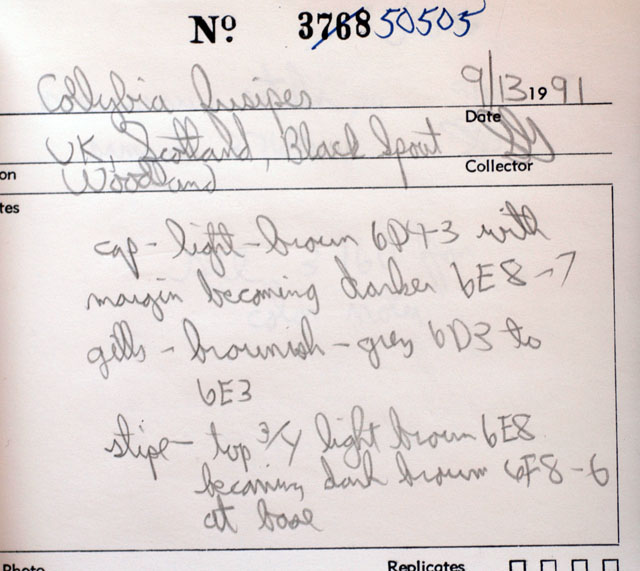 Nº 3768 50505
Collybia fusipes 9/13 1991
Date
UK, Scotland, Black Spout
on Woodland Collector
tes
cap - light-brown 6D4-3 with
margin becoming darker 6E8-7
gills - brownish-grey 6D3 to
6E3
stipe - top 3/4 light brown 6E8
becoming dark brown 6F8-6
at base
Photo Replicates